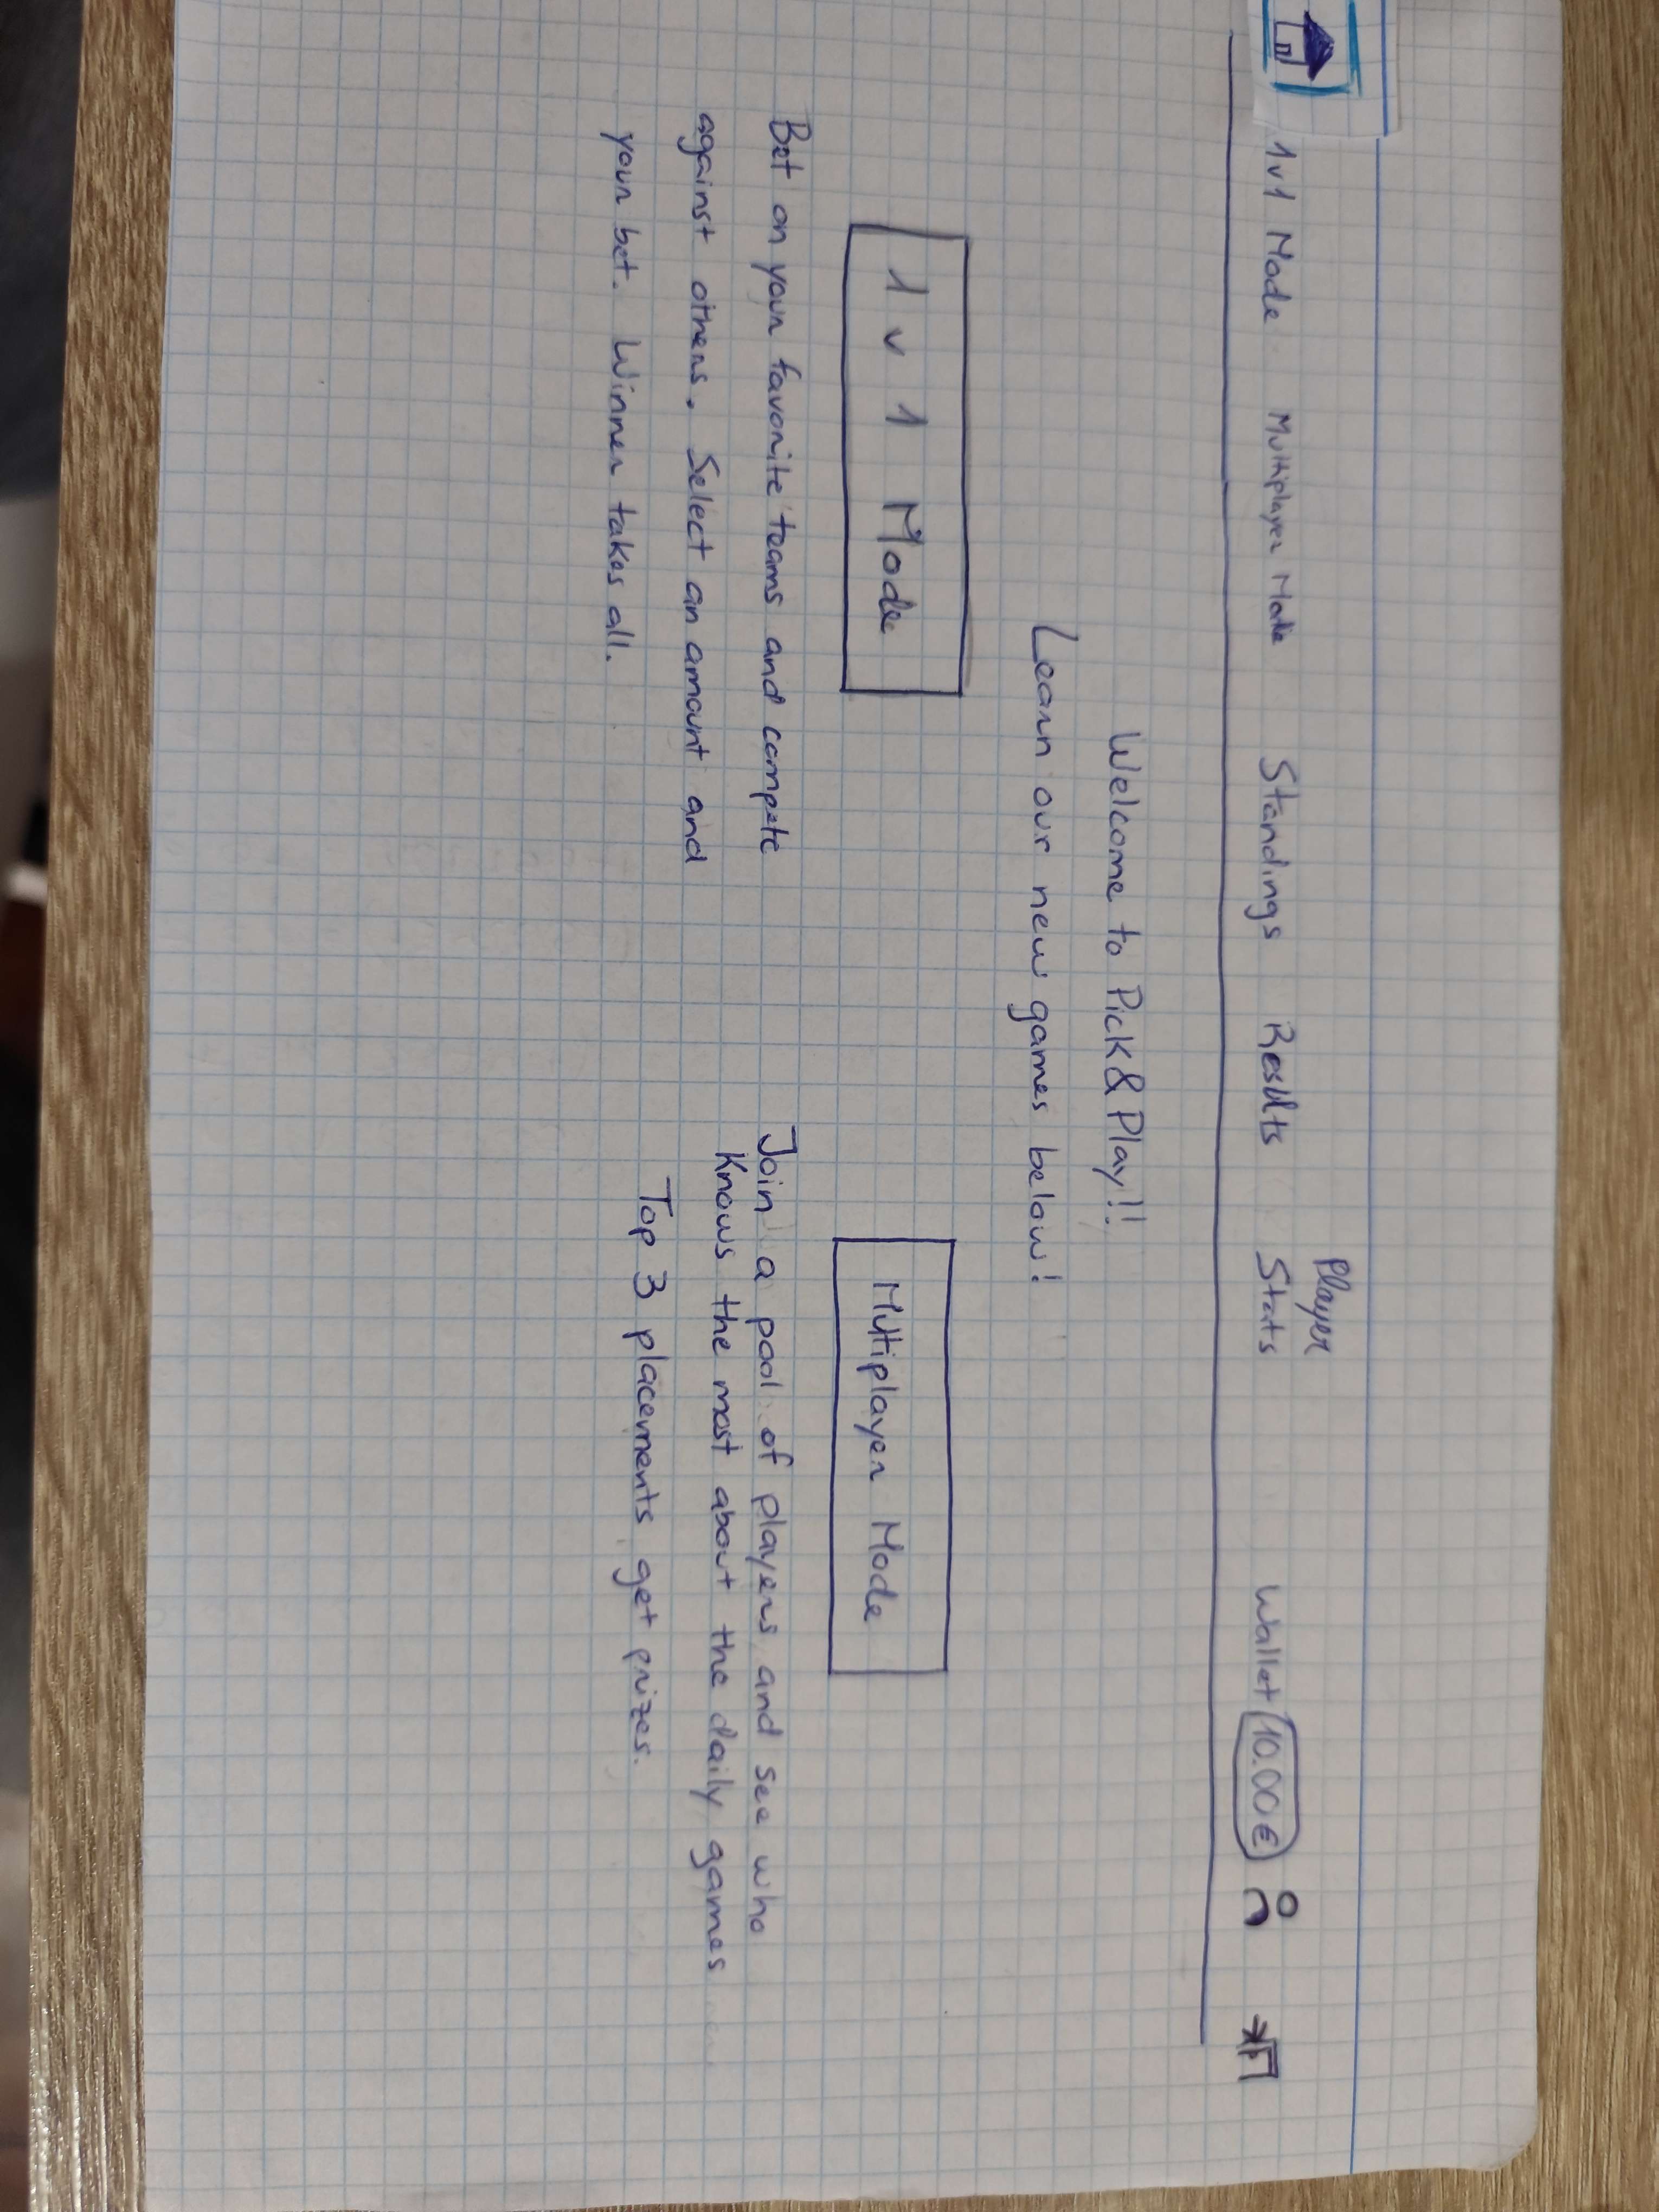 1v1 Mode Multiplayer Mode Standings Results Player Stats Wallet 10.00€
Welcome to Pick&Play!!
Learn our new games below!
1 v 1 Mode
Bet on your favorite teams and compete
against others. Select an amount and
your bet. Winner takes all.
Multiplayer Mode
Join a pool of players and see who
Knows the most about the daily games
Top 3 placements get prizes.